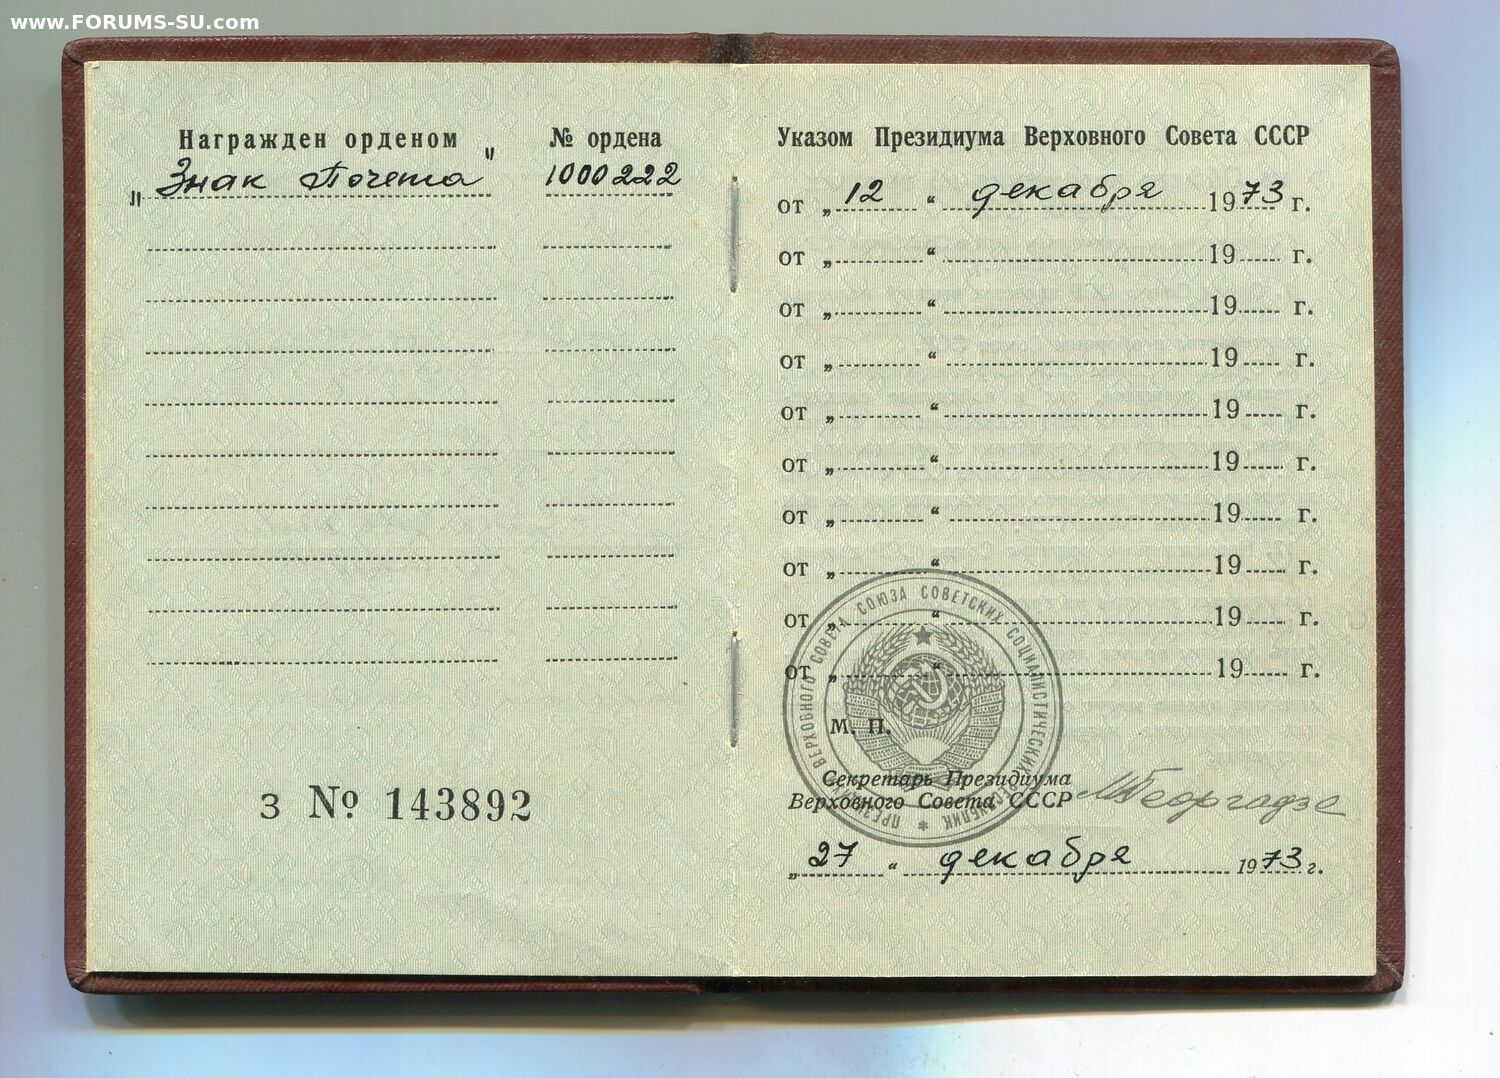 www.FORUMS-SU.com
Награжден орденом № ордена
„Знак Почета" 1000222
З № 143892
Указом Президиума Верховного Совета СССР
от „12“ декабря 1973 г.
от „ “ 19 г.
от „ “ 19 г.
от „ “ 19 г.
от „ “ 19 г.
от „ “ 19 г.
от „ “ 19 г.
от „ “ 19 г.
от „ “ 19 г.
от „ “ 19 г.
ПРЕЗИДИУМ ВЕРХОВНОГО СОВЕТА СОЮЗА СОВЕТСКИХ СОЦИАЛИСТИЧЕСКИХ РЕСПУБЛИК *
М. П.
Секретарь Президиума
Верховного Совета СССР МГеоргадзе
„27“ декабря 1973 г.